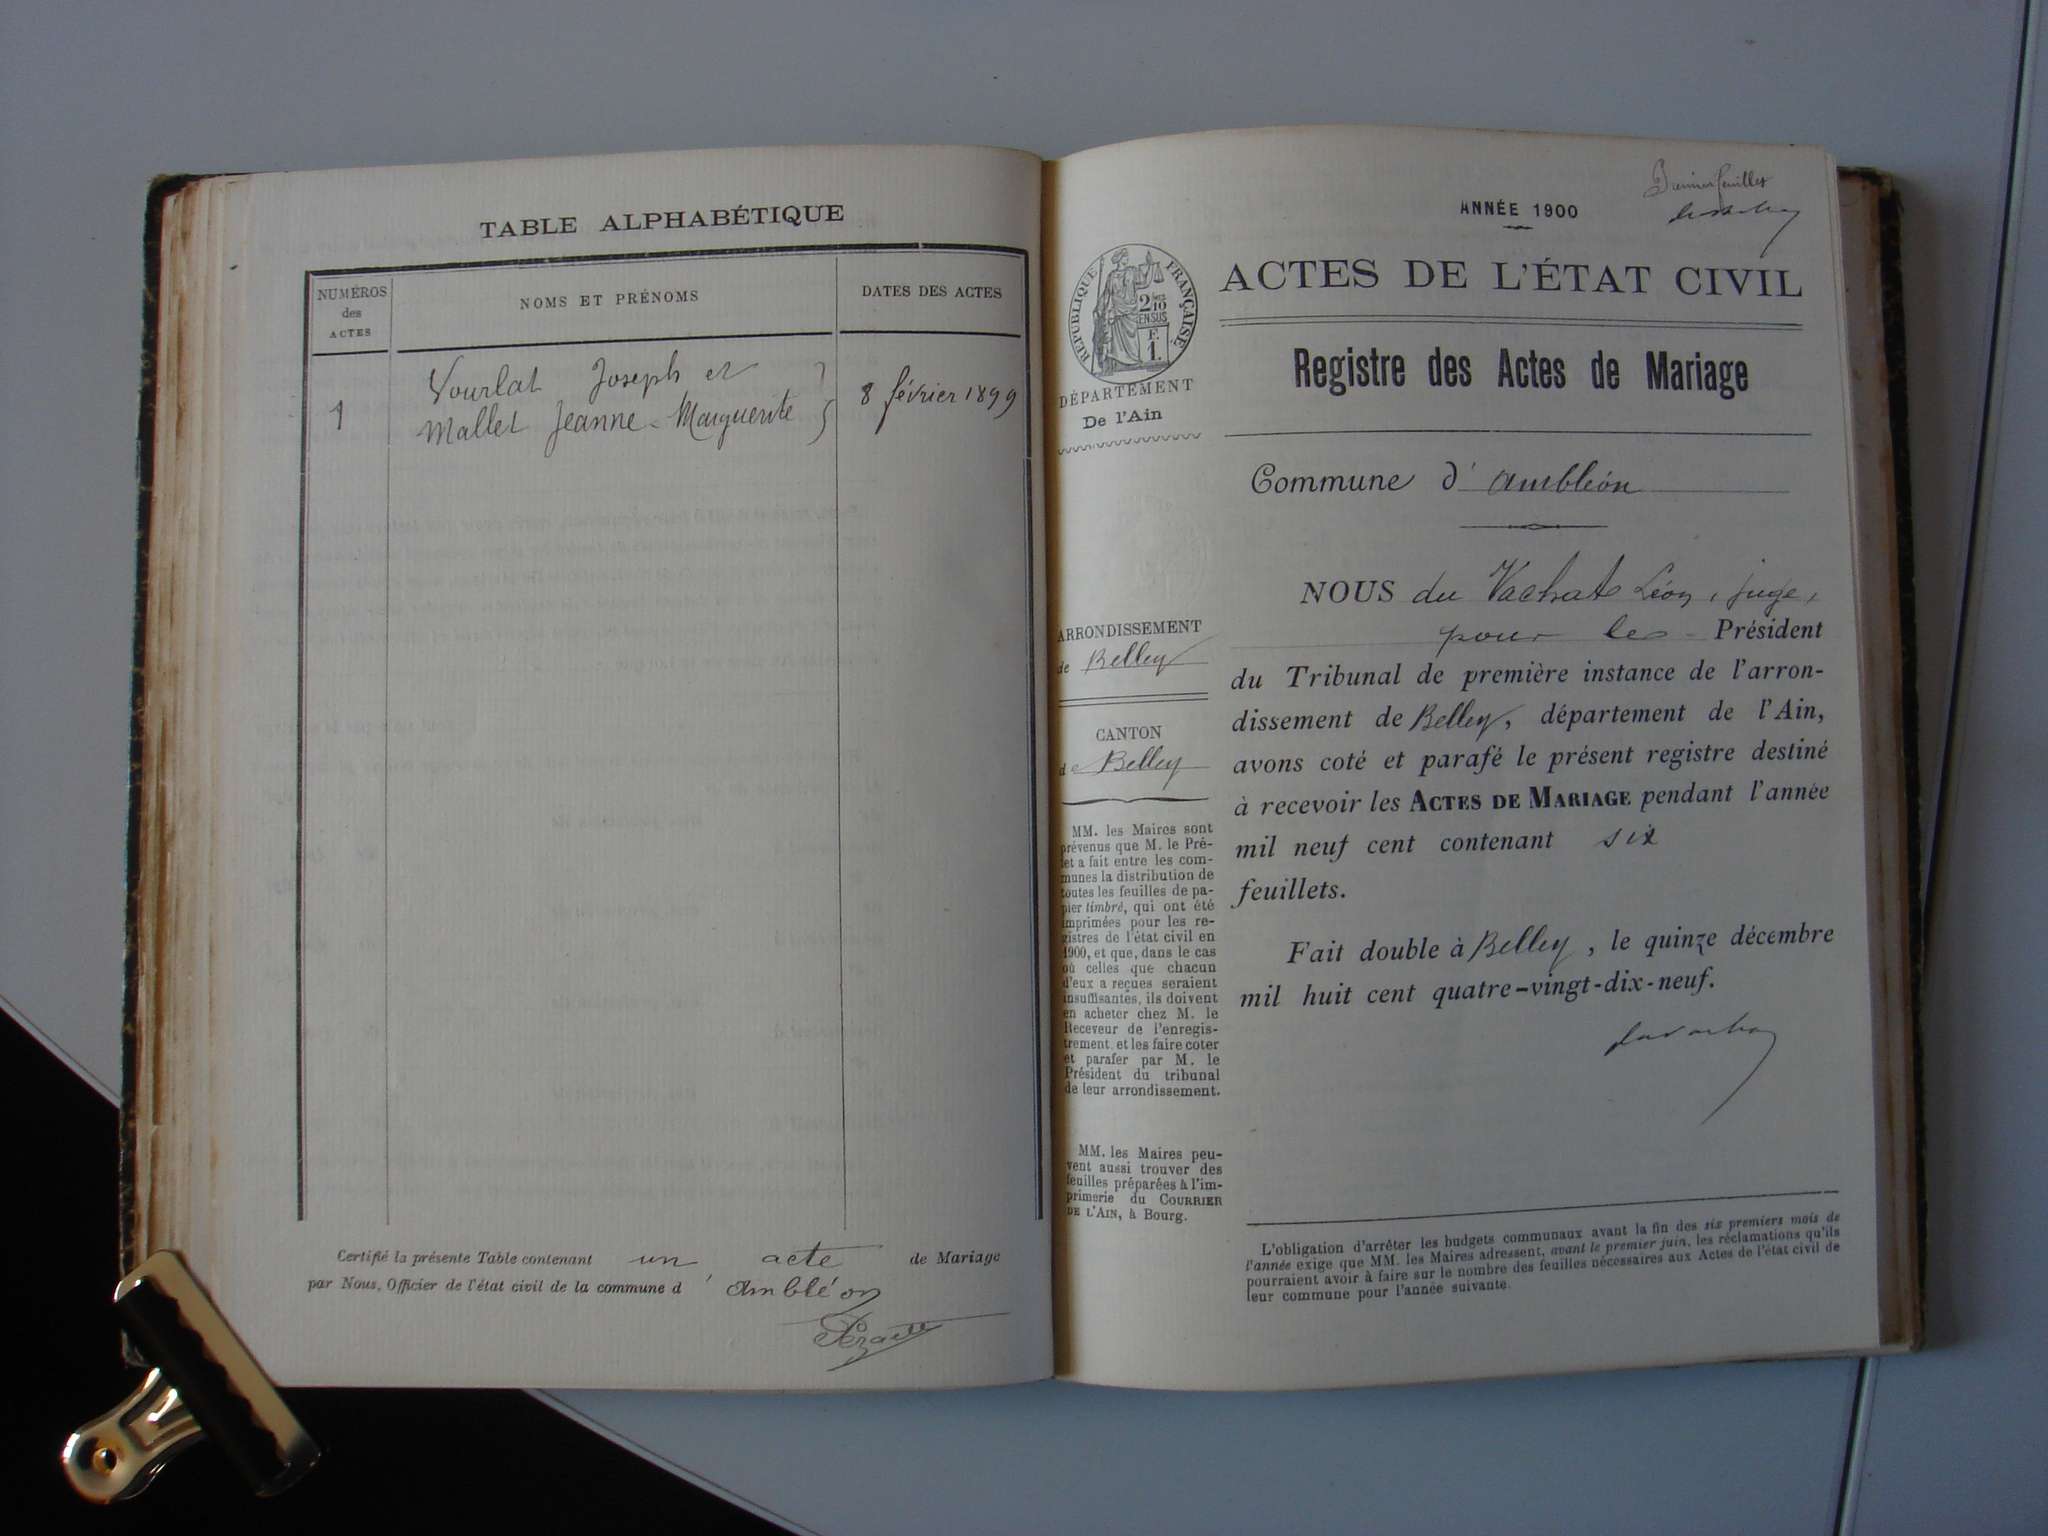 TABLE ALPHABÉTIQUE
NUMÉROS
des
ACTES
NOMS ET PRÉNOMS
DATES DES ACTES
1
Vourlat Joseph et
Mallet Jeanne-Marguerite
8 février 1899
Certifié la présente Table contenant un acte de Mariage
par Nous, Officier de l'état civil de la commune d'Ambléon
Premier feuillet
ANNÉE 1900
RÉPUBLIQUE FRANÇAISE
2/10
EN SUS
F.
1.
DÉPARTEMENT
De l'Ain
ARRONDISSEMENT
de Belley
CANTON
de Belley
MM. les Maires sont
prévenus que M. le Pré-
fet a fait entre les com-
munes la distribution de
toutes les feuilles de pa-
pier timbré, qui ont été
imprimées pour les re-
gistres de l'état civil en
1900, et que, dans le cas
où celles que chacun
d'eux a reçues seraient
insuffisantes, ils doivent
en acheter chez M. le
Receveur de l'enregis-
trement et les faire coter
et parafer par M. le
Président du tribunal
de leur arrondissement.
MM. les Maires peu-
vent aussi trouver des
feuilles préparées à l'im-
primerie du COURRIER
DE L'AIN, à Bourg.
ACTES DE L'ÉTAT CIVIL
Registre des Actes de Mariage
Commune d'Ambléon
NOUS du Vachat Léon, juge,
pour le Président
du Tribunal de première instance de l'arron-
dissement de Belley, département de l'Ain,
avons coté et parafé le présent registre destiné
à recevoir les ACTES DE MARIAGE pendant l'année
mil neuf cent contenant six
feuillets.
Fait double à Belley, le quinze décembre
mil huit cent quatre-vingt-dix-neuf.
L'obligation d'arrêter les budgets communaux avant la fin des six premiers mois de
l'année exige que MM. les Maires adressent, avant le premier juin, les réclamations qu'ils
pourraient avoir à faire sur le nombre des feuilles nécessaires aux Actes de l'état civil de
leur commune pour l'année suivante.